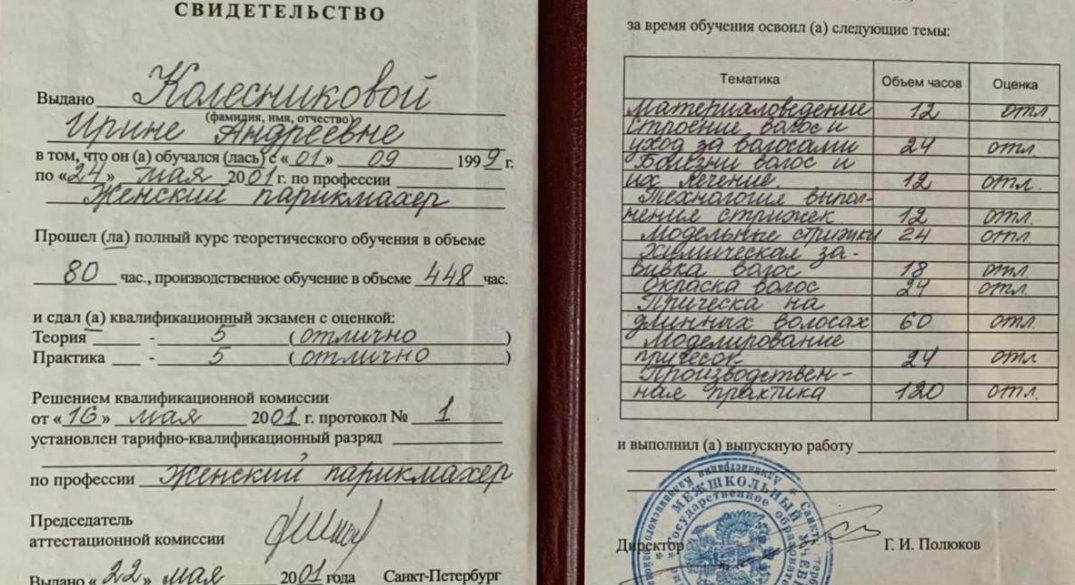 СВИДЕТЕЛЬСТВО
Выдано Колесниковой
(фамилия, имя, отчество)
Ирине Андреевне
в том, что он (а) обучался (лась) с «01» 09 1999 г.
по «24» мая 2001 г. по профессии
Женский парикмахер
Прошел (ла) полный курс теоретического обучения в объеме
80 час., производственное обучение в объеме 448 час.
и сдал (а) квалификационный экзамен с оценкой:
Теория - 5 (отлично)
Практика - 5 (отлично)
Решением квалификационной комиссии
от «16» мая 2001 г. протокол № 1
установлен тарифно-квалификационный разряд
по профессии Женский парикмахер
Председатель
аттестационной комиссии
Выдано «22» мая 2001 года Санкт-Петербург
за время обучения освоил (а) следующие темы:
Тематика Объем часов Оценка
Материаловедение 12 отл.
Строение волос и
уход за волосами 24 отл.
Болезни волос и
их лечение. 12 отл.
Технология выпол-
нения стрижек 12 отл.
Модельные стрижки 24 отл.
Химическая за-
вивка волос 18 отл.
Окраска волос 24 отл.
Прическа на
длинных волосах 60 отл.
Моделирование
причесок 24 отл.
Производствен-
ная практика 120 отл.
и выполнил (а) выпускную работу
МЕЖШКОЛЬНЫЙ
Государственное
Директор Г. И. Полюков